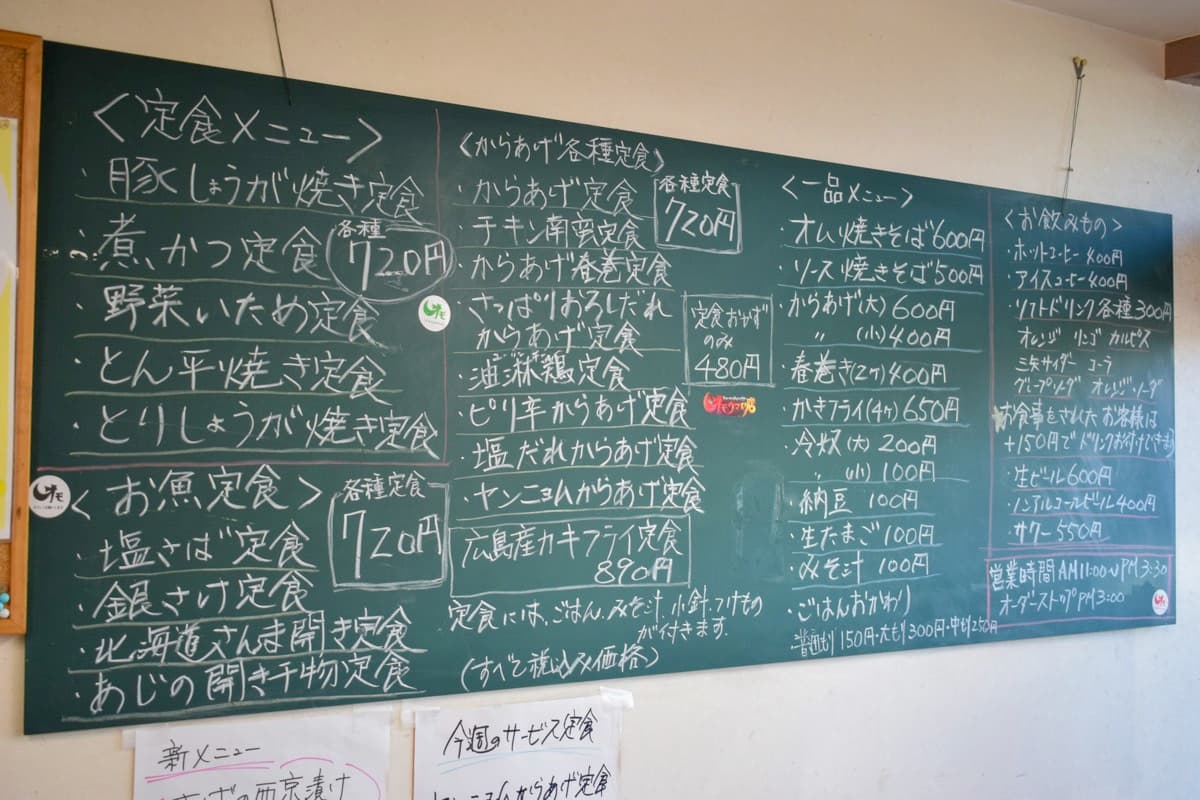 〈定食メニュー〉
・豚しょうが焼き定食
・煮かつ定食
・野菜いため定食
・とん平焼き定食
・とりしょうが焼き定食
各種
720円
〈お魚定食〉
各種定食
720円
・塩さば定食
・銀さけ定食
・北海道さんま開き定食
・あじの開き干物定食
〈からあげ各種定食〉
・からあげ定食
・チキン南蛮定食
・からあげ春巻定食
・さっぱりおろしだれ
からあげ定食
・油淋鶏定食
・ピリ辛からあげ定食
・塩だれからあげ定食
・ヤンニョムからあげ定食
広島産カキフライ定食
890円
各種定食
720円
定食おかず
のみ
480円
定食には、ごはん、みそ汁、小鉢、つけもの
が付きます。
(すべて税込み価格)
〈一品メニュー〉
・オム焼きそば600円
・ソース焼きそば500円
・からあげ(大)600円
〃(小)400円
・春巻き(2ヶ)400円
・かきフライ(4ヶ)650円
・冷奴(大)200円
〃(小)100円
・納豆 100円
・生たまご100円
・みそ汁 100円
・ごはんおかわり
普通もり150円・大もり300円・中もり250円
〈お飲みもの〉
・ホットコーヒー400円
・アイスコーヒー400円
・ソフトドリンク各種300円
オレンジ リンゴ カルピス
三矢サイダー コーラ
グレープソーダ オレンジソーダ
お食事をされたお客様は
+150円でドリンクお付けできます
・生ビール600円
・ノンアルコールビール400円
・サワー550円
営業時間AM11:00~PM3:30
オーダーストップPM3:00
新メニュー
西京漬け
今週のサービス定食
ヤンニョムからあげ定食